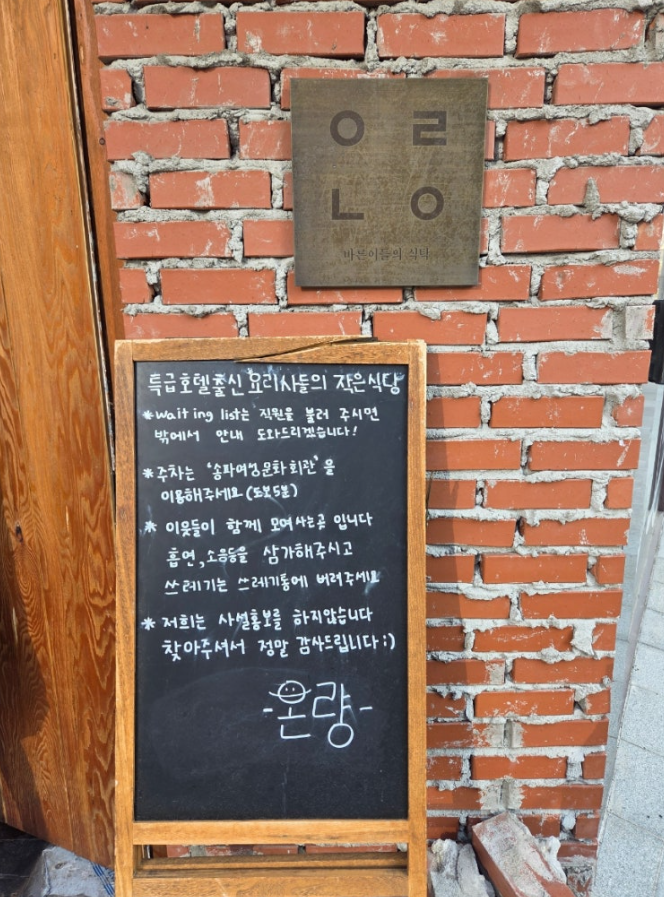 ㅇ ㄹ
ㄴ ㅇ
바른이들의 식탁
특급호텔출신 요리사들의 작은식당
*waiting list는 직원을 불러 주시면
밖에서 안내 도와드리겠습니다!
*주차는 '송파여성문화회관'을
이용해주세요 (도보5분)
* 이웃들이 함께 모여사는곳 입니다
흡연,소음등을 삼가해주시고
쓰레기는 쓰레기통에 버려주세요
* 저희는 사설홍보를 하지않습니다
찾아주셔서 정말 감사드립니다:)
-온량-